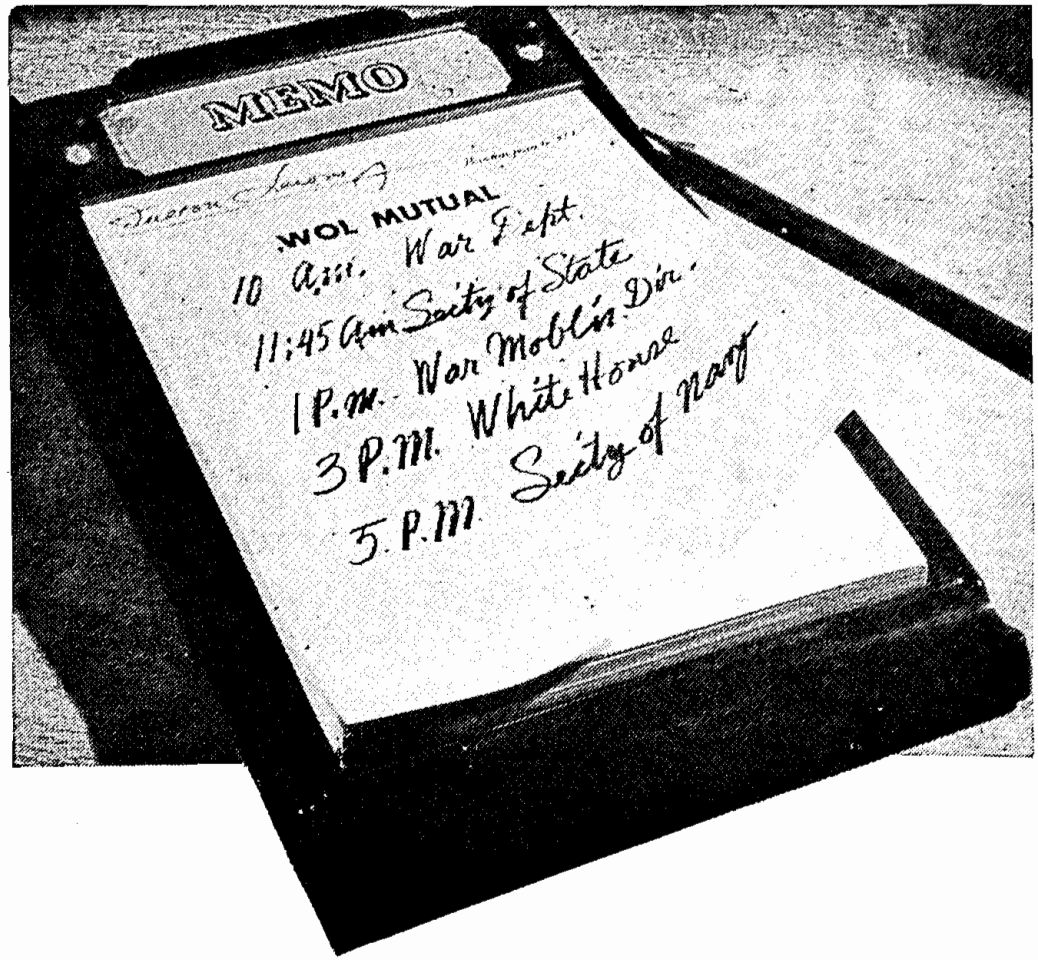 MEMO
WOL MUTUAL
10 a.m. War Dept.
11:45 am Sec'ty of State
1 P.m. War Mobl'n. Dir.
3 P.M. White House
5. P.M. Sec'ty of Navy